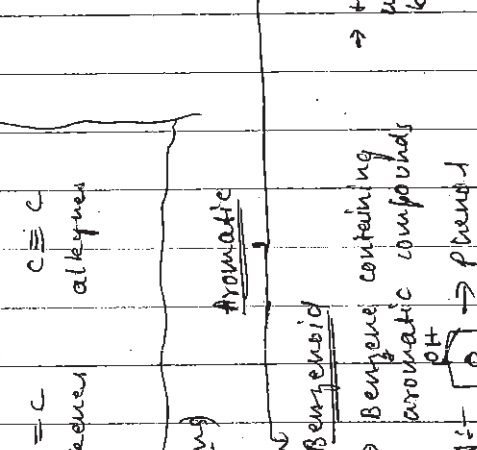 = C C ≡ C
alkynes
Aromatic
Benzenoid
→ Benzene containing
aromatic compounds
OH
→ phenol